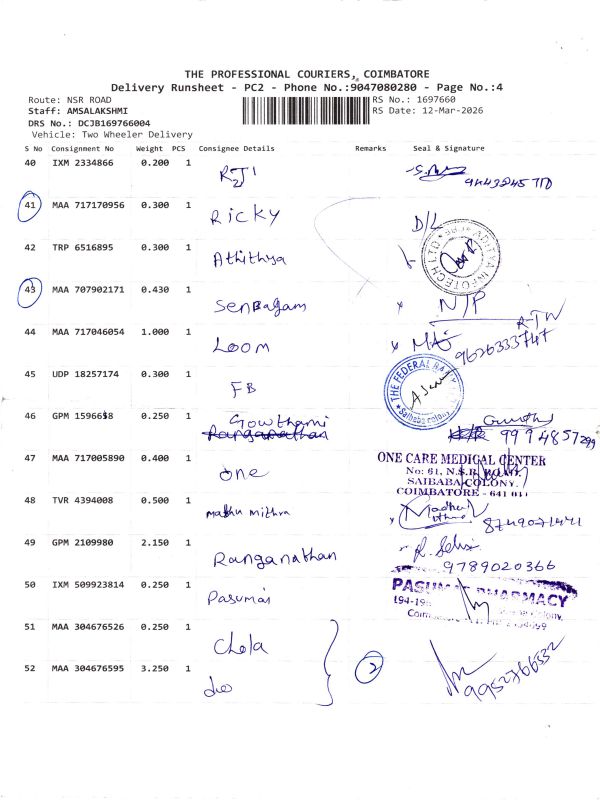 THE PROFESSIONAL COURIERS, COIMBATORE
Delivery Runsheet - PC2 - Phone No.:9047080280 - Page No.:4
Route: NSR ROAD
RS No.: 1697660
Staff: AMSALAKSHMI
RS Date: 12-Mar-2026
DRS No.: DCJB169766004
Vehicle: Two Wheeler Delivery
S No Consignment No Weight PCS Consignee Details Remarks Seal & Signature
40 IXM 2334866 0.200 1
41 MAA 717170956 0.300 1 Ricky D/L
42 TRP 6516895 0.300 1 Athithya
ADITYA INFOTECH LTD
43 MAA 707902171 0.430 1 Senbagam N/P
44 MAA 717046054 1.000 1 Loom
9626333747
45 UDP 18257174 0.300 1 FB
THE FEDERAL
Saibaba colony
46 GPM 1596658 0.250 1 Gowthami
Ranganathan
9994857299
47 MAA 717005890 0.400 1 One
ONE CARE MEDICAL CENTER
No: 61, N.S.R. ROAD,
SAIBABA COLONY,
COIMBATORE - 641 011
48 TVR 4394008 0.500 1 Mathu mithra
49 GPM 2109980 2.150 1 Ranganathan R. Selvi
9789020366
50 IXM 509923814 0.250 1 Pasumai
PHARMACY
51 MAA 304676526 0.250 1 Chola
52 MAA 304676595 3.250 1 do 2
9952766332